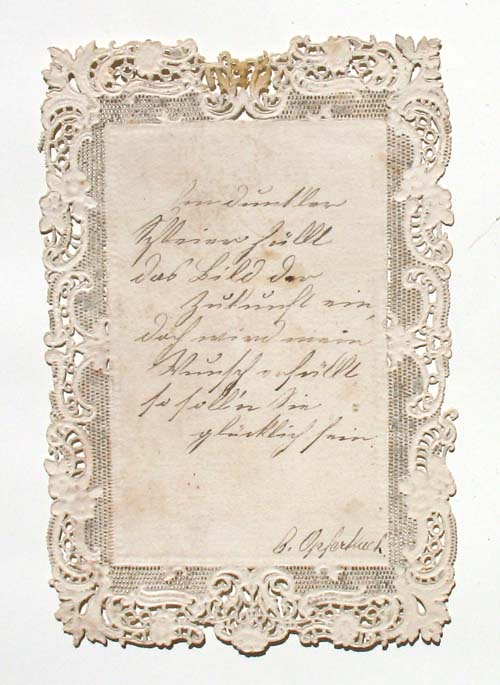 Ein dunkler
Schleier hüllt
das Bild der
Zukunft ein,
doch wird mein
Wunsch erfüllt
so soll'n Sie
glücklich sein.
Opferbach